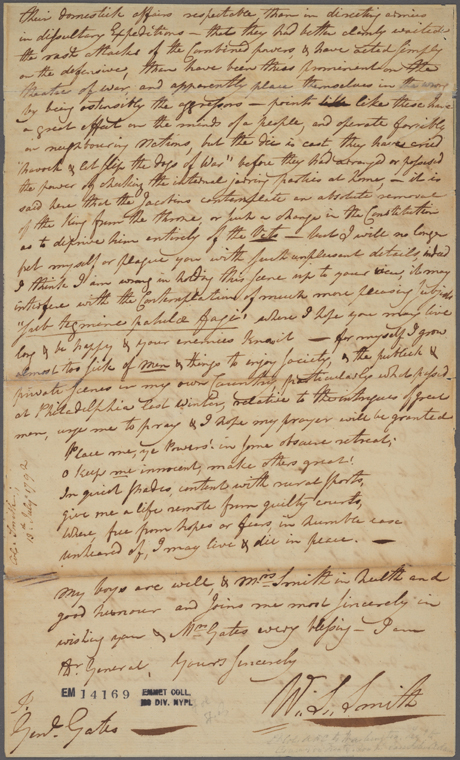 their domestick affairs respectable than in directing armies
in desultory expeditions – that they had better calmly waited
the rash attacks of the Combined powers, & have acted simply
on the defensive, than have been thus prominent on the
theatre of war, and apparently place themselves in the wrong
by being ostensibly the aggressors – points like these have
a great effect on the minds of a people, and operate forcibly
on neighbouring Nations, but the die is cast they have cried
"havock & let slip the Dogs of War" before they had arranged or possessed
the power of checking the internal jarring parties at Home, – it is
said here that the Jacobins contemplate an absolute removal
of the King from the throne, or such a change in the Constitution
as to deprive him entirely of the Veto – but I will no longer
put myself or plague you with such unpleasant details, indeed
I think I am wrong in holding this scene up to your view, it may
interfere with the Contemplation of much more pleasing subjects
"sub tegmine patulæ fagi" where I hope you may live
long & be happy & your enemies Knait – for myself I grow
almost too sick of men & things to enjoy society, & the publick &
private scenes in my own Country particularly what passed
at Philadelphia last winter, relative to the intrigues of great
men, urge me to pray & I hope my prayer will be granted
Place me, ye Powers! in some obscure retreat;
O keep me innocent, make others great!
In quiet shades, content with rural sports,
Give me a life remote from guilty courts,
Where, free from hopes or fears, in humble ease
unheard of, I may live & die in peace. –
My boys are well, & Mrs Smith in health and
good humour and Joins me most sincerely in
wishing you & Mrs Gates every blessing – I am
Dr General, Yours Sincerely
W. S. Smith
Genl. Gates
EM 14169
EMMET COLL.
MSS DIV. NYPL
Col. Smith
13th May 1792